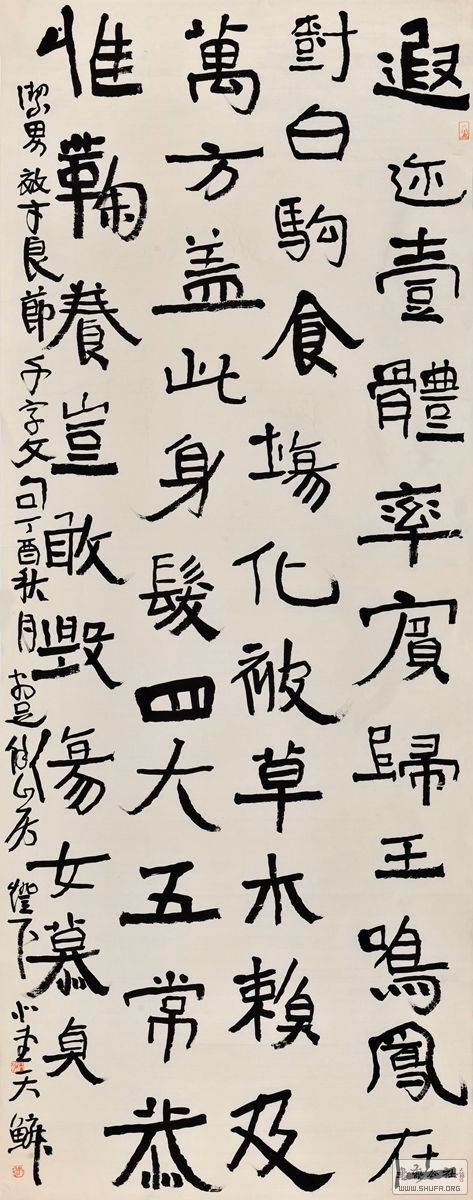 遐迩壹體率賓歸王鳴鳳在
對白駒食塲化被草木賴及
萬方盖此身髮四大五常恭
惟鞠養豈敢毀傷女慕貞
潔男效才良節千字文句丁酉秋月山居燈下
WWW.SHUFA.ORG